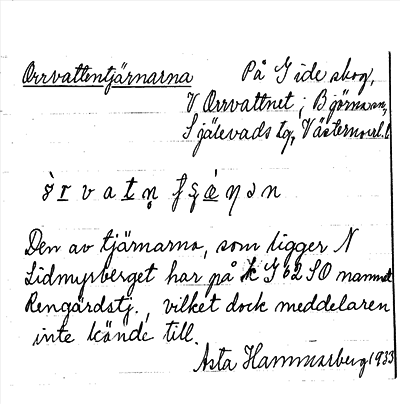 Orrvattentjärnarna På Gide skog,
V Orrvattnet i Björna sn,
Själevads tg, Västernorrl. l
Den av tjärnarna, som ligger N
Lidmyrberget har på k G 62 SO namnet
Rengårdstj., vilket dock meddelaren
inte kände till.
Asta Hammarberg 1933